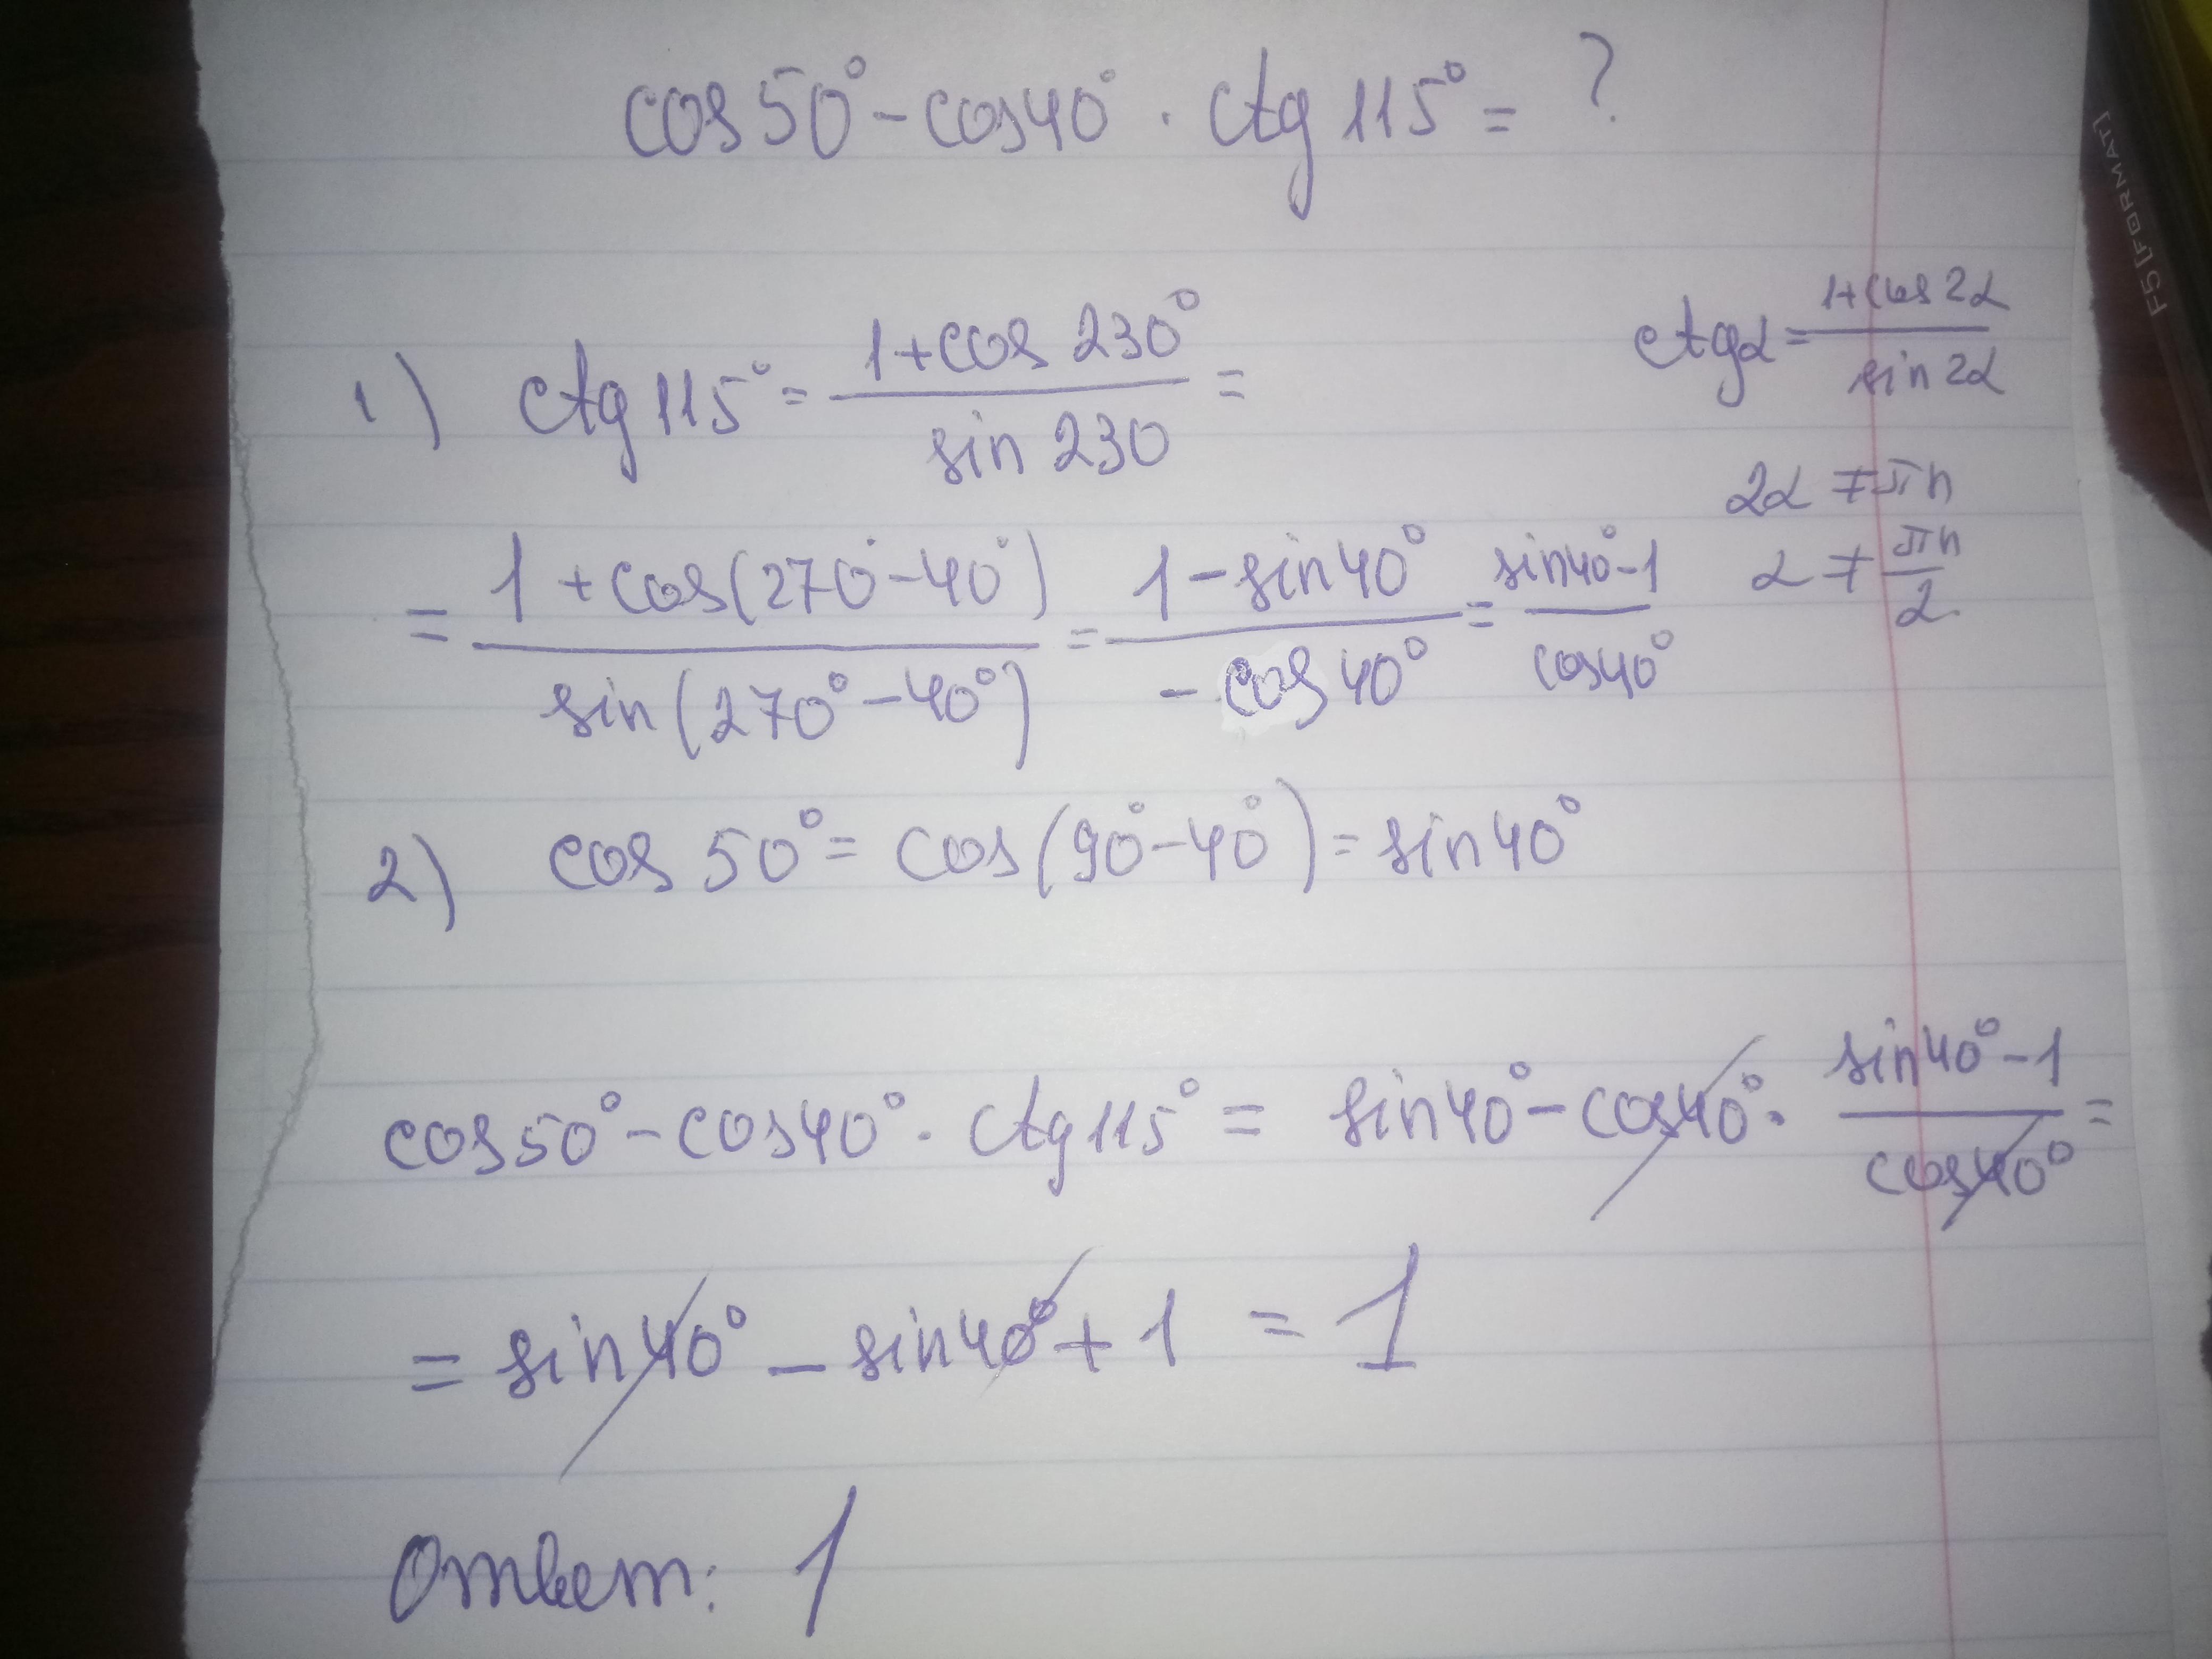 cos 50° - cos 40° · ctg 115° = ?
1) ctg 115° = (1 + cos 230°) / (sin 230) =
ctg α = (1 + cos 2α) / (sin 2α)
2α ≠ πn
α ≠ πn / 2
= (1 + cos(270° - 40°)) / (sin(270° - 40°)) = (1 - sin 40°) / (- cos 40°) = (sin 40° - 1) / (cos 40°)
2) cos 50° = cos(90° - 40°) = sin 40°
cos 50° - cos 40° · ctg 115° = sin 40° - cos 40° · (sin 40° - 1) / (cos 40°) =
= sin 40° - sin 40° + 1 = 1
Ответ: 1
F5[FORMAT]